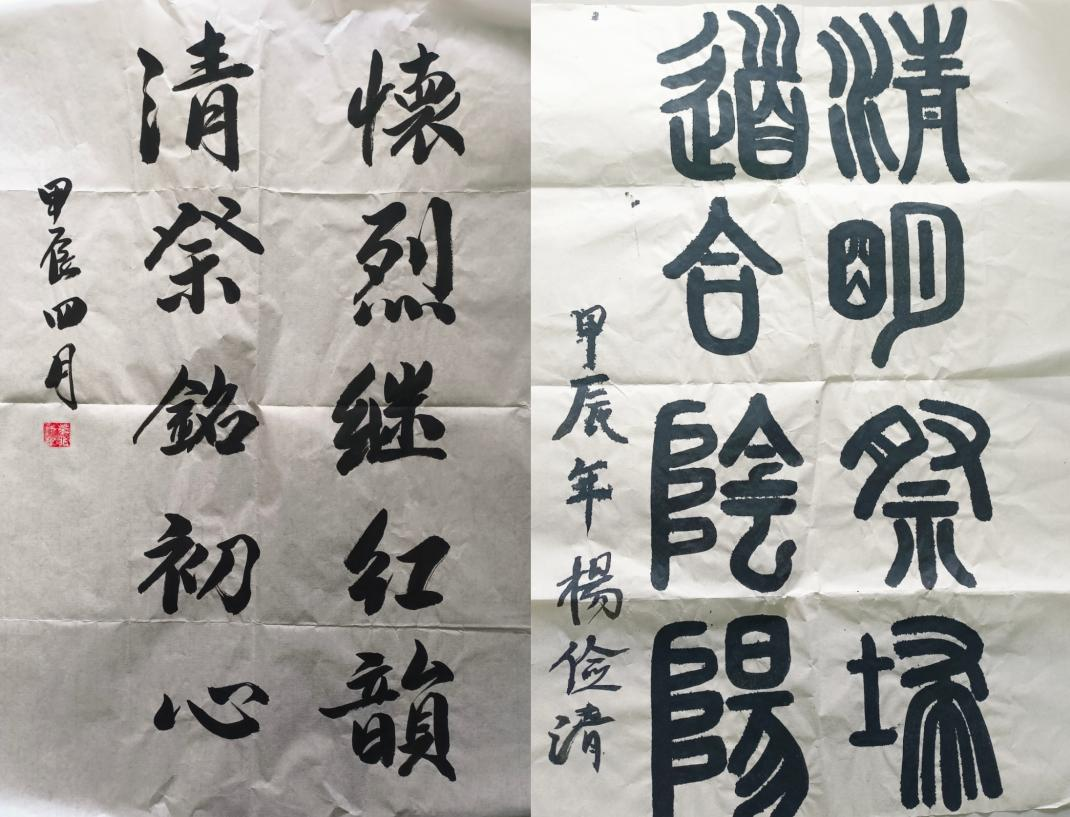 懷烈继红韻
清祭銘初心
甲辰四月
清明祭埽
道合陰陽
甲辰年楊俭清